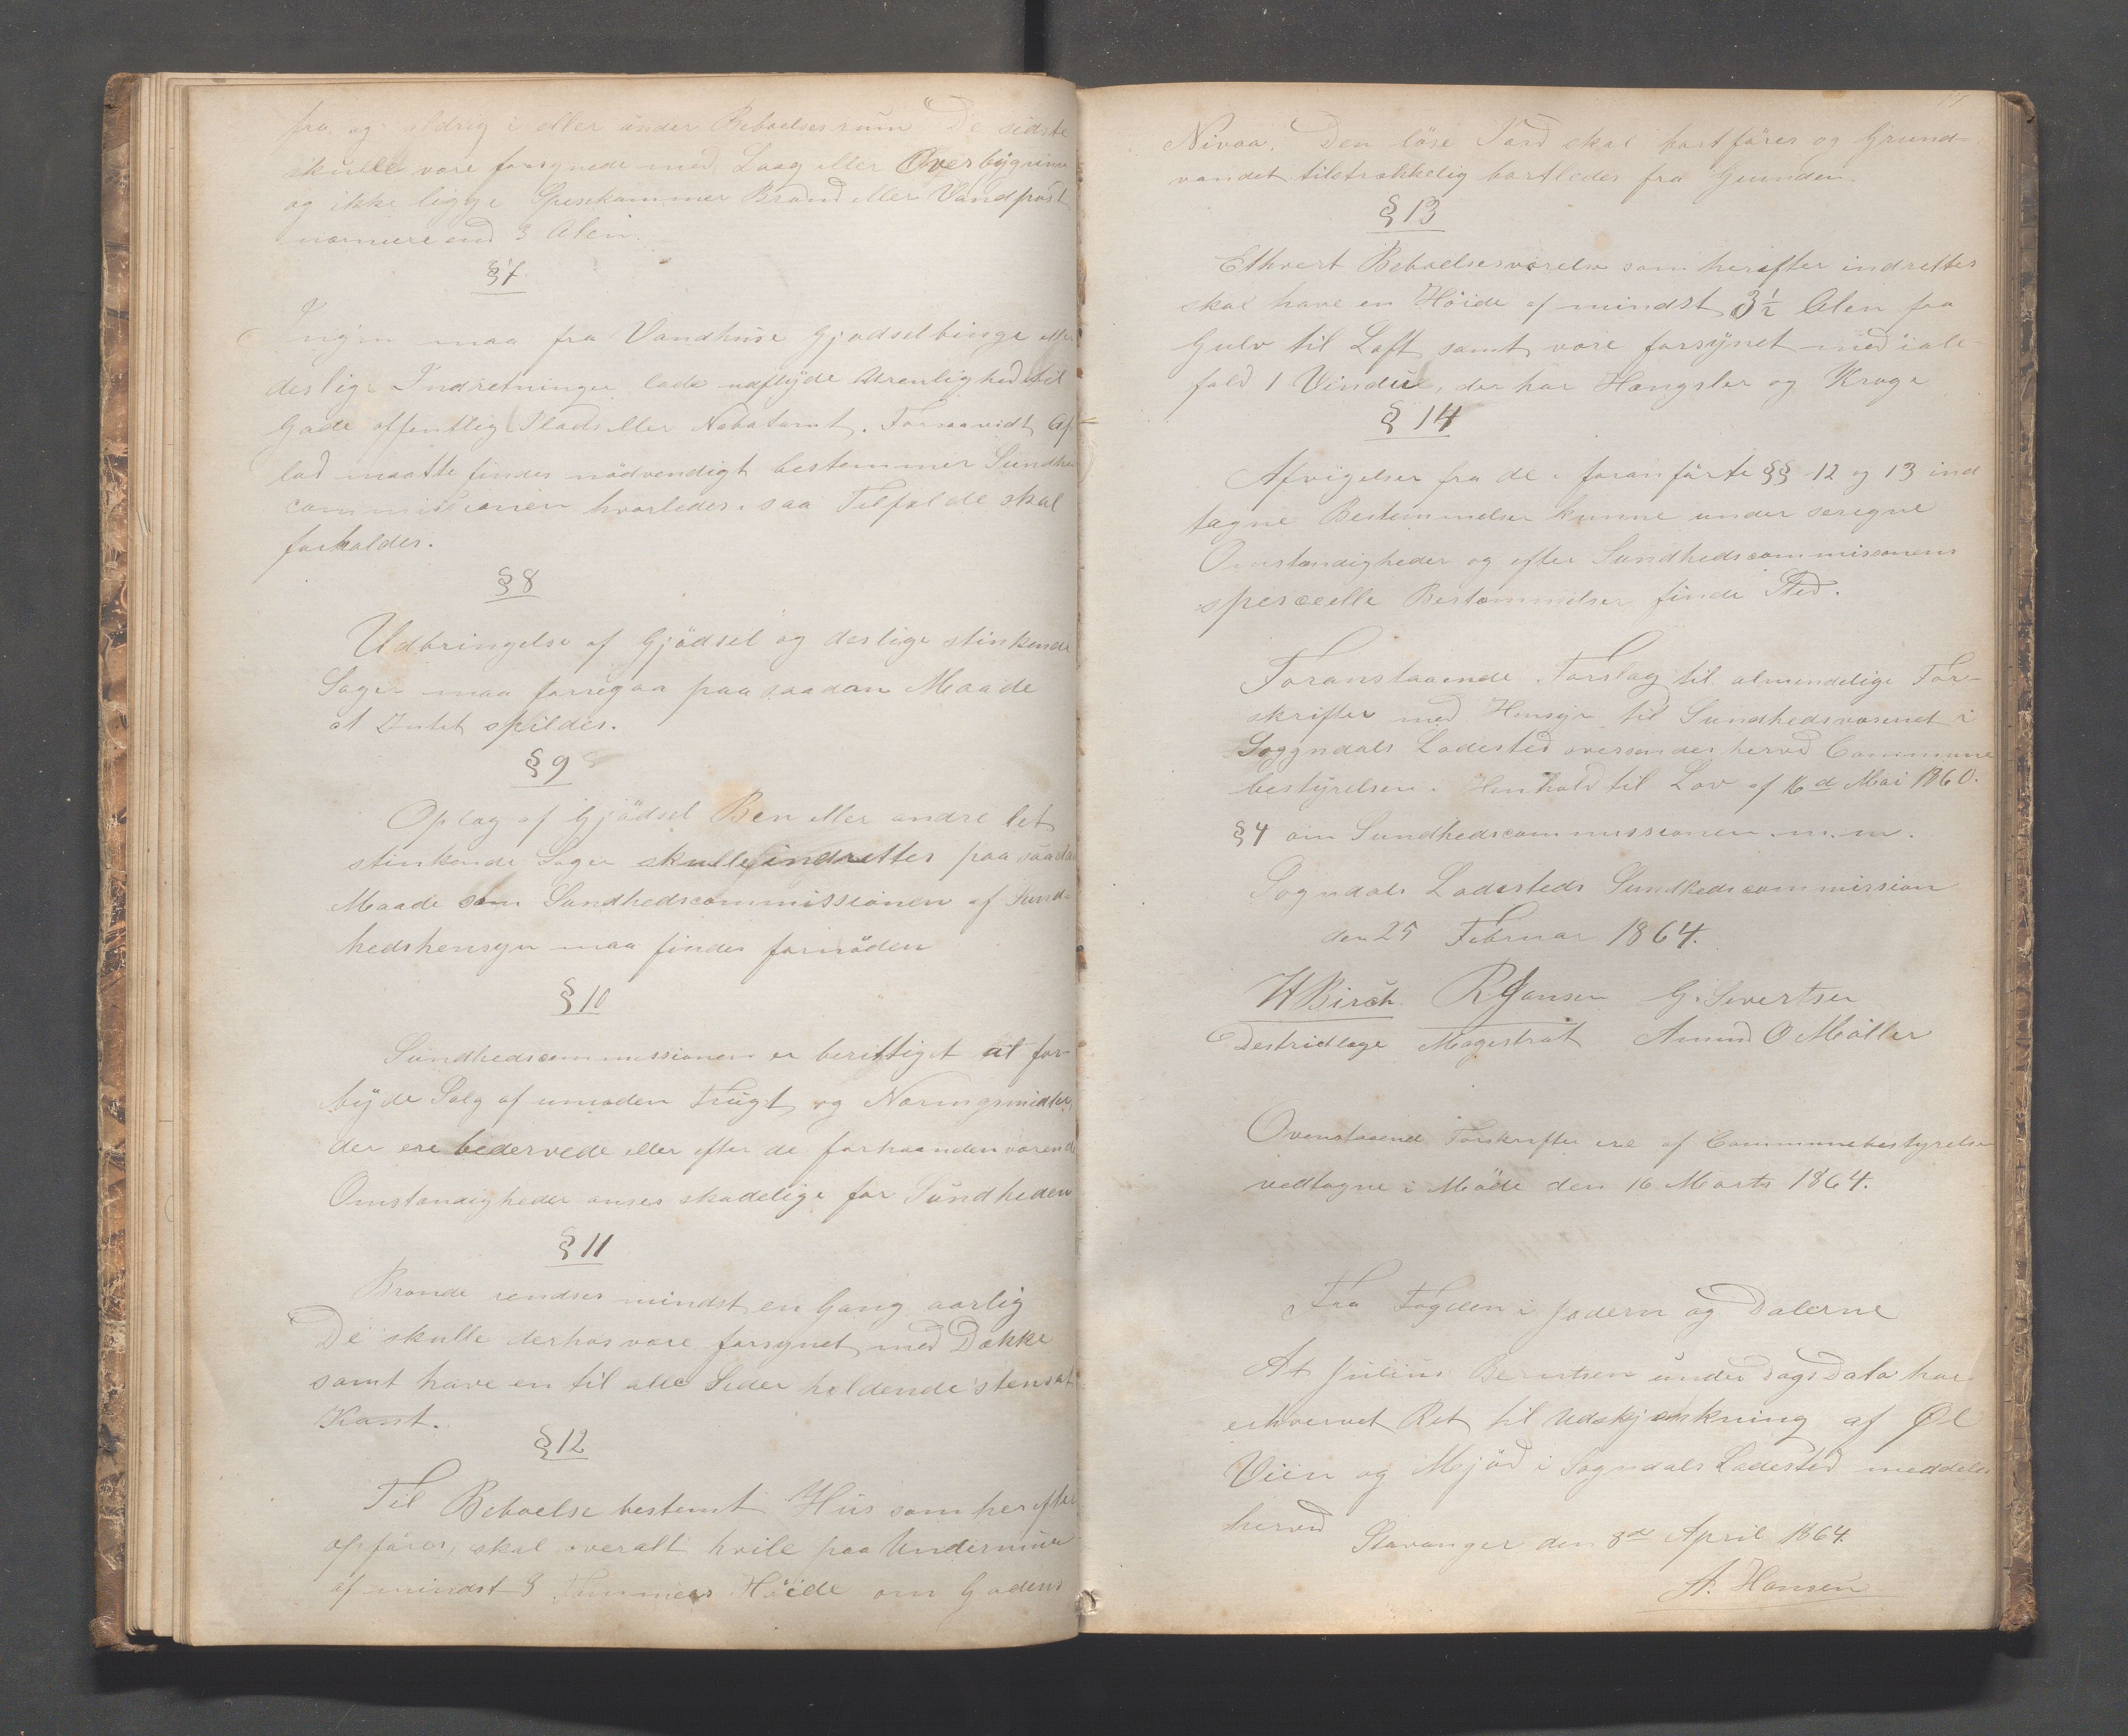 fra og aldrig i eller under Beboelsesrum De sidste
skulle være forsynede med Laag eller Overbygning
og ikke ligge Spisekammer Brønd eller Vandpost
nærmere end 3 Alen.
§7
Ingen maa fra Vandhuse Gjødselbinge eller
deslige Indretninger lade udflyde Urenlighed til
Gade offentlig Plads eller Nabotomt. Forsaavidt Af-
lad maatte findes nødvendigt bestemmer Sundheds
commissionen hvorledes i saa Tilfælde skal
forholdes.
§8
Udbringelse af Gjødsel og deslige stinkende
Sager maa foregaa paa saadan Maade
at Intet spildes.
§9
Oplag af Gjødsel Ben eller andre let
stinkende Sager skulle indrettes paa saadan
Maade som Sundhedscommissionen af Sund-
hedshensyn maa finde fornøden
§10
Sundhedscommissionen er berettiget at for-
byde Salg af umoden Frugt og Næringsmidler,
der ere bedervede eller efter de forhaandenværende
Omstændigheder anses skadelige for Sundheden
§11
Brønde rendses mindst en Gang aarlig
De skulle derhos være forsynet med Dække
samt have en til alle Sider heldende stensat
Kant.
§12
Til Beboelse bestemt Hus som herefter
opføres, skal overalt hvile paa Undermuur
af mindst 3 Tommers Høide om Gadens
Nivaa. Den løse Jord skal bortføres og Grund-
vandet tilstrækkelig bortledes fra Grunden.
§13
Ethvert Beboelsesværelse som herefter indrettes
skal have en Høide af mindst 3½ Alen fra
Gulv til Loft samt være forsynet med ialt-
fald 1 Vindue, der har Hængsler og Kroge
§14
Afvigelser fra de i foranførte §§ 12 og 13 ind
tagne Bestemmelser kunne under særegne
Omstændigheder og efter Sundhedscommissionens
specielle Bestemmelser finde Sted.
Foranstaaende Forslag til almindelige For-
skrifter med Hensyn til Sundhedsvæsenet i
Soggndals Ladested oversendes herved Commune
bestyrelsen i Henhold til Lov af 16d Mai 1860.
§4 om Sundhedscommissionen m.m.
Sogndals Ladesteds Sundhedscommission
den 25 Februar 1864.
H Birch. R Jansen G. Sivertsen
Destriclæge Magestrat Amund O Møller
Ovenstaaend Forskrifter ere af Communebestyrelsen
vedtagne i Møde den 16 Marts 1864.
Fra Fogden i Jædern og Dalerne
At Julius Berntsen under Dags Dato har
erhvervet Ret til Udskjænkning af Øl
Viin og Mjød i Sogndals Ladested meddeles
herved
Stavanger den 8de April 1864.
A. Hansen